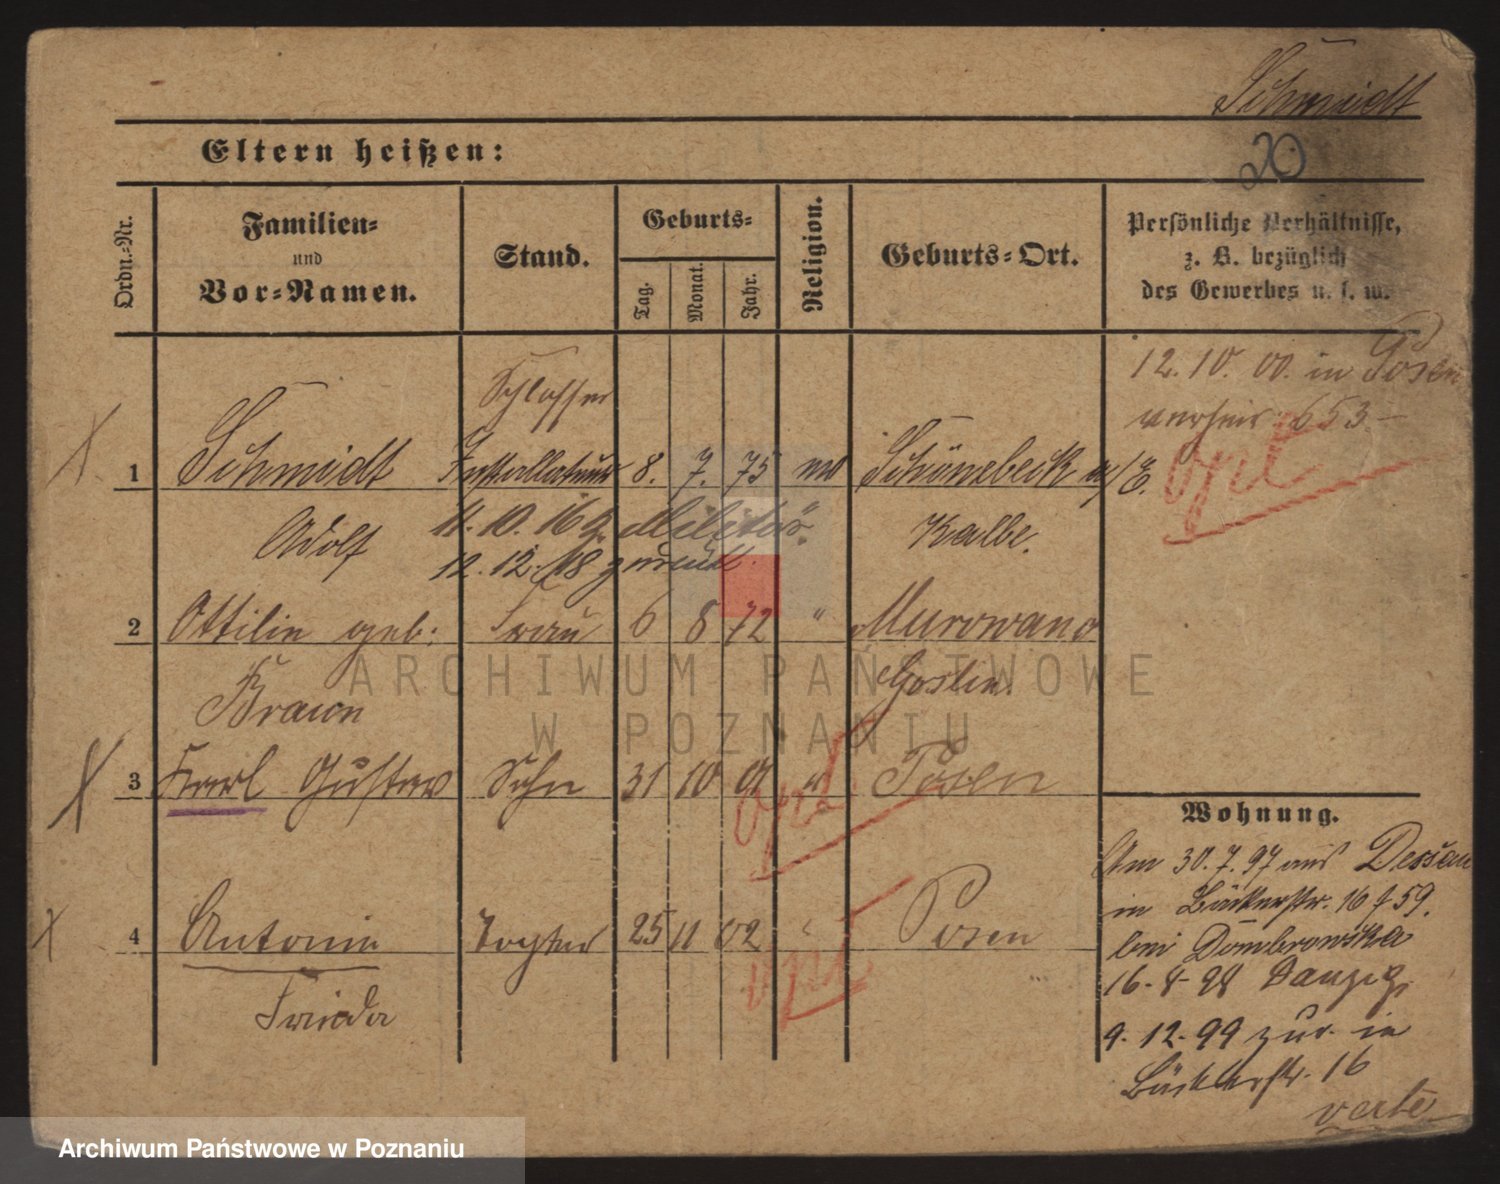 Schmidt
20
Eltern heißen:
Ordn.-Nr.
Familien-
und
Vor-Namen.
Stand.
Geburts-
Tag.
Monat.
Jahr.
Religion.
Geburts-Ort.
Persönliche Verhältnisse,
z. B. bezüglich
des Gewerbes u. s. w.
12. 10. 00. in Posen
verheir. 653
opt
Schlosser
1 Schmidt Installateur 8. 7. 75 Schönebeck a/E.
Adolf 11. 10. 16 z. Militär. Kalbe.
12. 12. 18 zurück.
2 Ottilie geb: Frau 6 8 72 " Murowano
Braun Goslin.
3 Karl Gustav Sohn 31 10 01 " Posen
opt
4 Antonie Tochter 25 11 02 " Posen
Frieda
opt
Wohnung.
Am 30. 7. 97 aus Dessau
in Bäckerstr. 16 f 59.
bei Dombrowska
16. 8. 98 Danzig
9. 12. 99 zur. in
Bäckerstr. 16
verte
ARCHIWUM PAŃSTWOWE
W POZNANIU
Archiwum Państwowe w Poznaniu